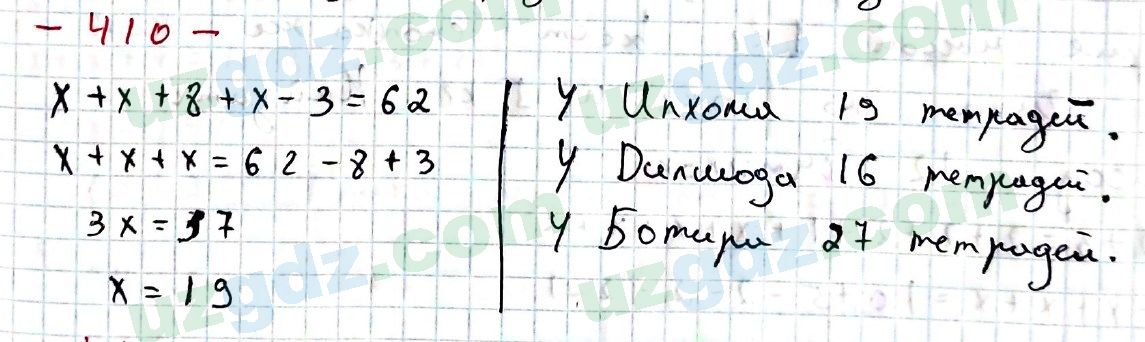 - 410 -
x + x + 8 + x - 3 = 62
x + x + x = 62 - 8 + 3
3x = 57
x = 19
У Илхома 19 тетрадей.
У Дилшода 16 тетрадей.
У Ботира 27 тетрадей.
uzgdz.com
uzgdz.com
uzgdz.com
uzgdz.com